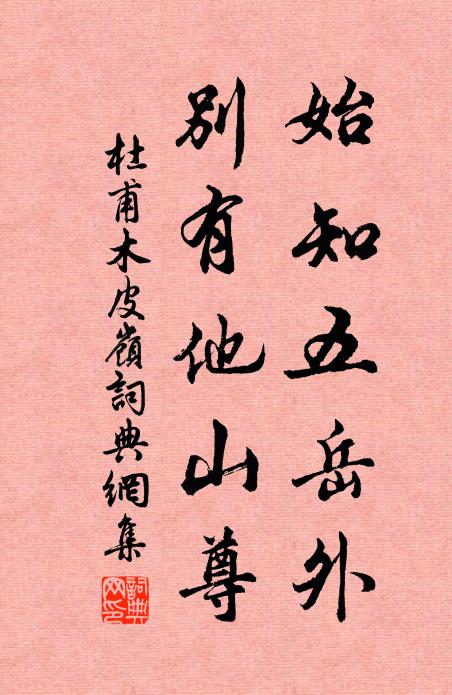 始知五岳外
別有他山尊
杜甫木皮嶺詞典網集
詞典網印